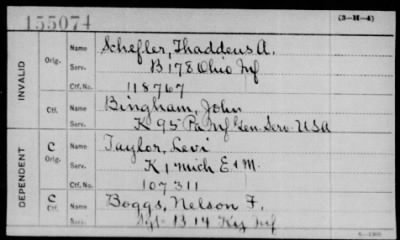 155074
(3-H-4)
INVALID
Orig. Name Schefler, Thaddeus A.
Serv. B 178 Ohio Inf
Ctf. No. 118767
Ctf. Name Bingham, John
Serv. K 95 Pa Inf Gen Serv USA
DEPENDENT
C Orig. Name Taylor, Levi
Serv. K 1 Mich E & M.
Ctf. No. 107311
C Ctf. Name Boggs, Nelson F.
Serv. Sgt. B 14 Ky Inf